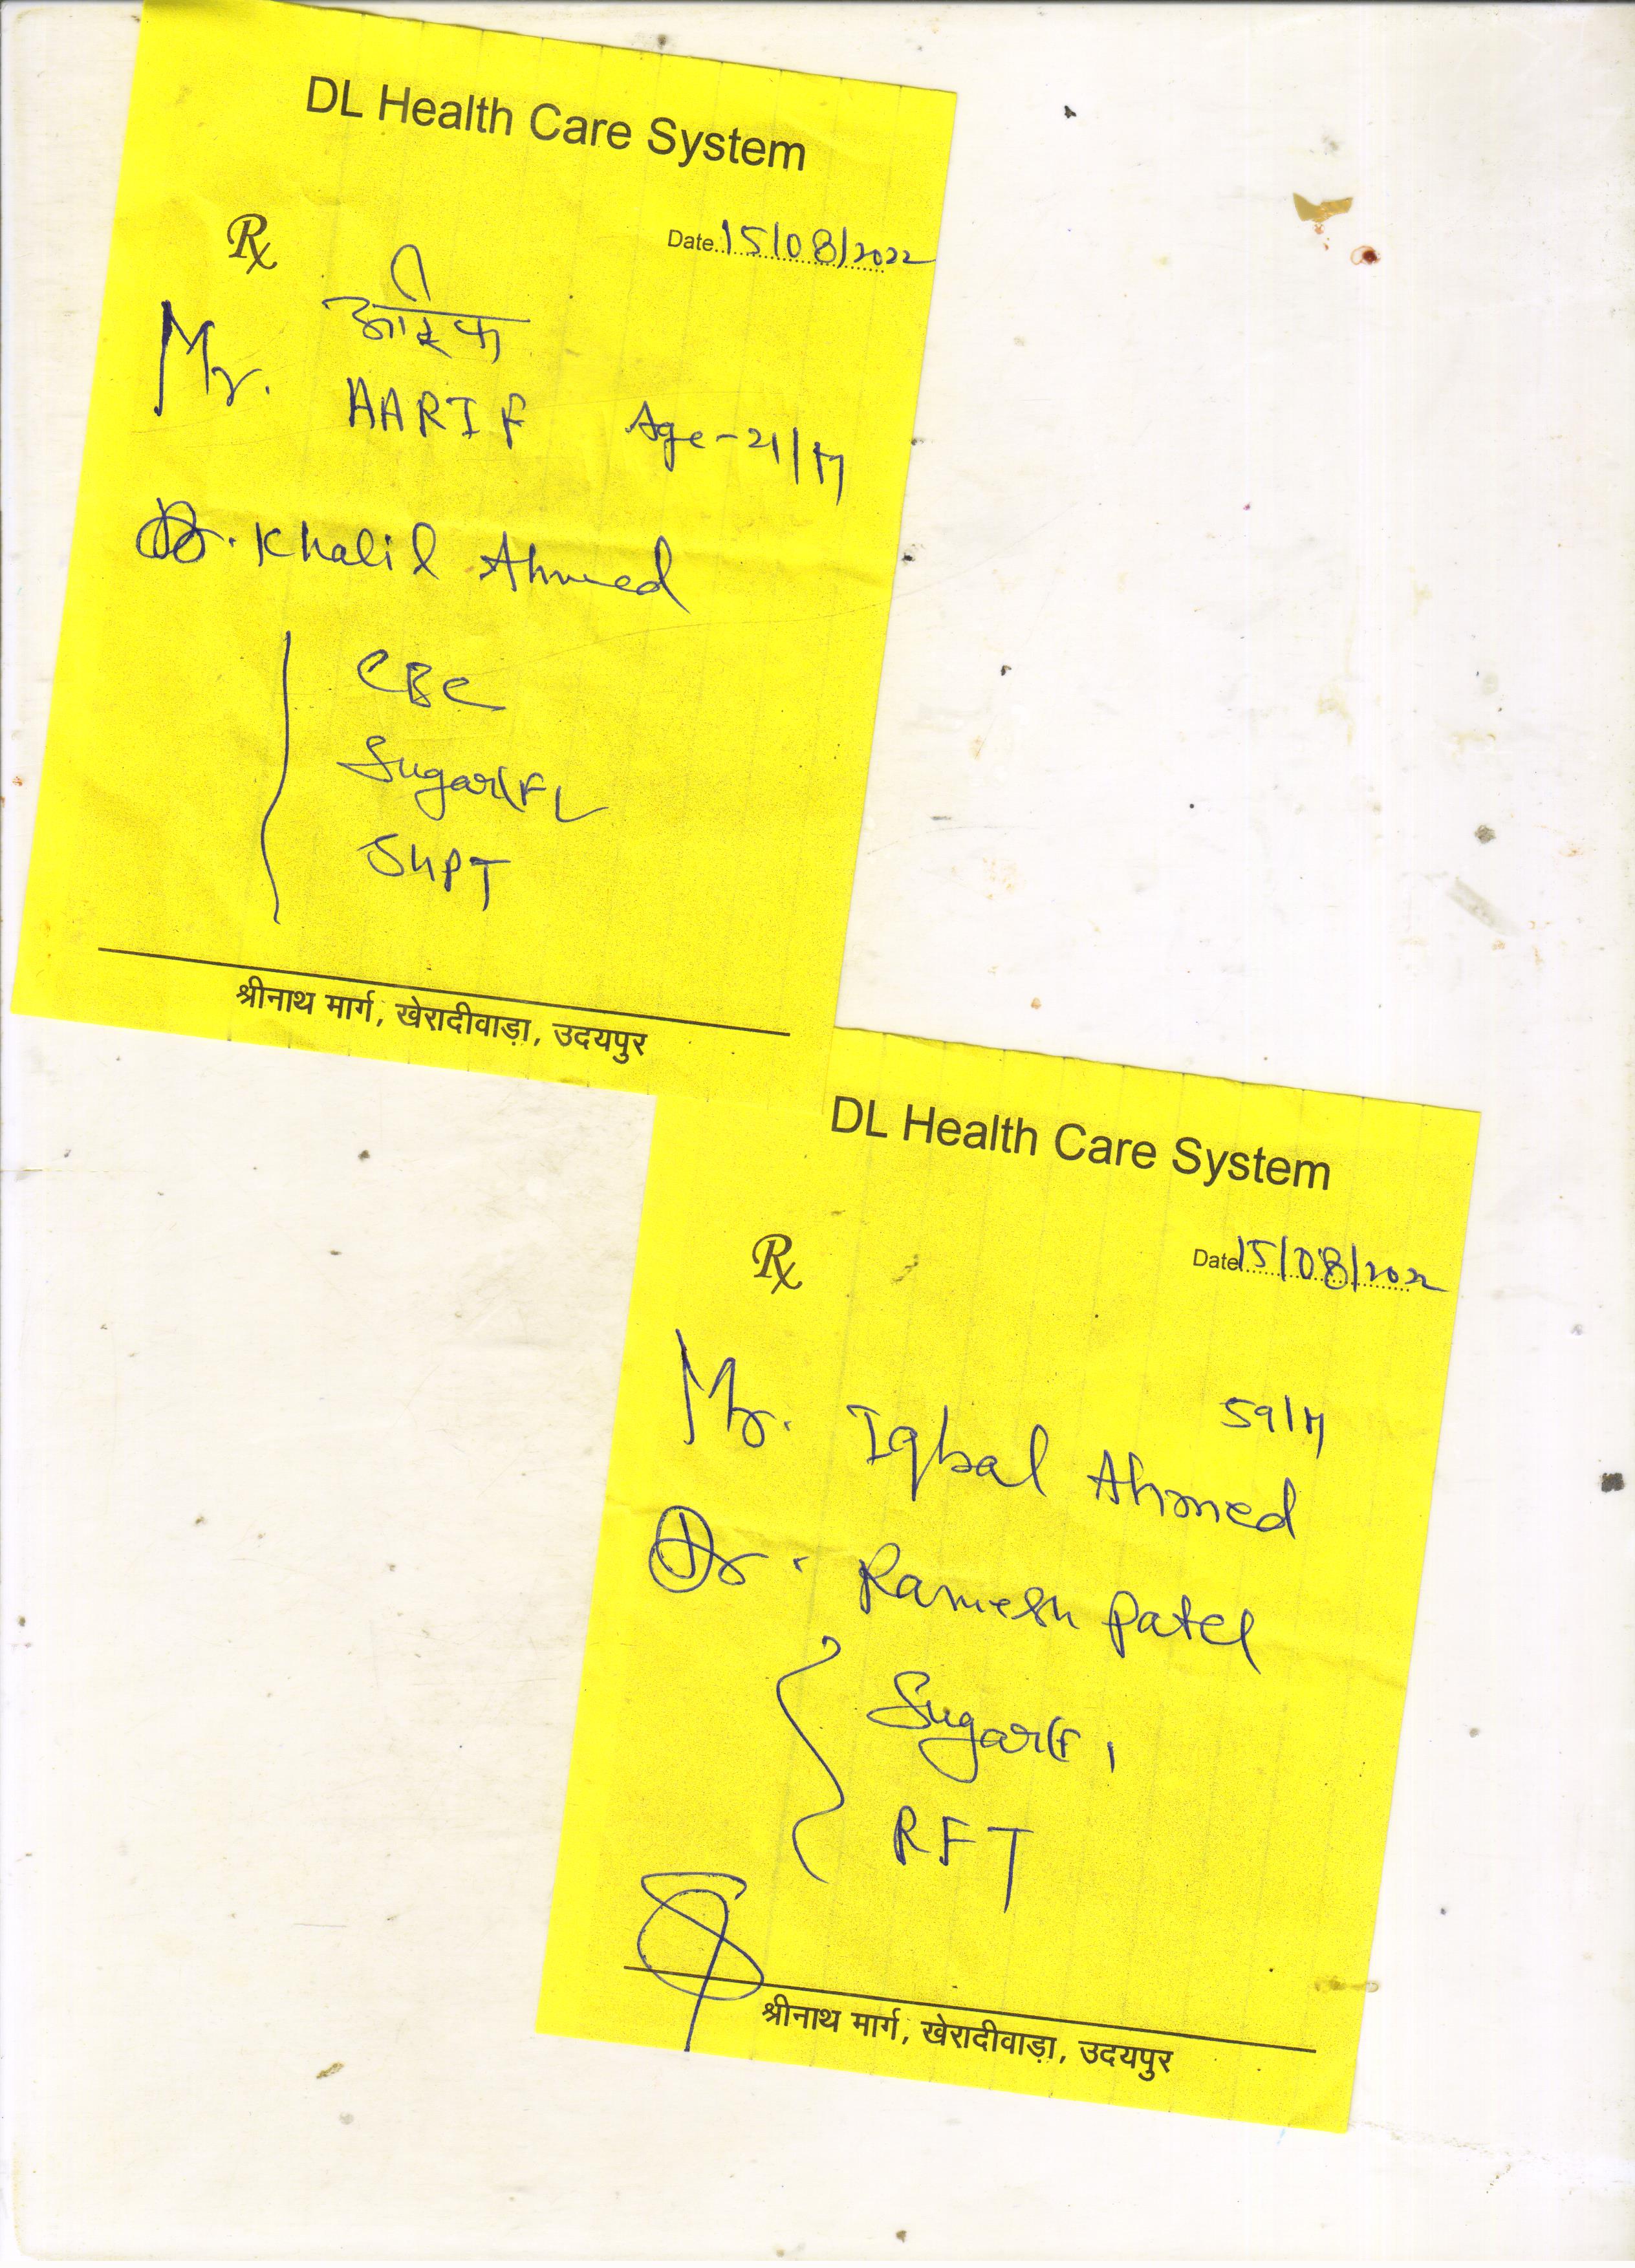 DL Health Care System
Rx
Date 15/08/2022
आरिफ
Mr. AARIF Age-21/M
Dr. Khalil Ahmed
CBC
Sugar(F)
SGPT
श्रीनाथ मार्ग, खेरादीवाड़ा, उदयपुर
DL Health Care System
Rx
Date 15/08/2022
59/M
Mr. Iqbal Ahmed
Dr. Ramesh Patel
Sugar(F)
RFT
श्रीनाथ मार्ग, खेरादीवाड़ा, उदयपुर